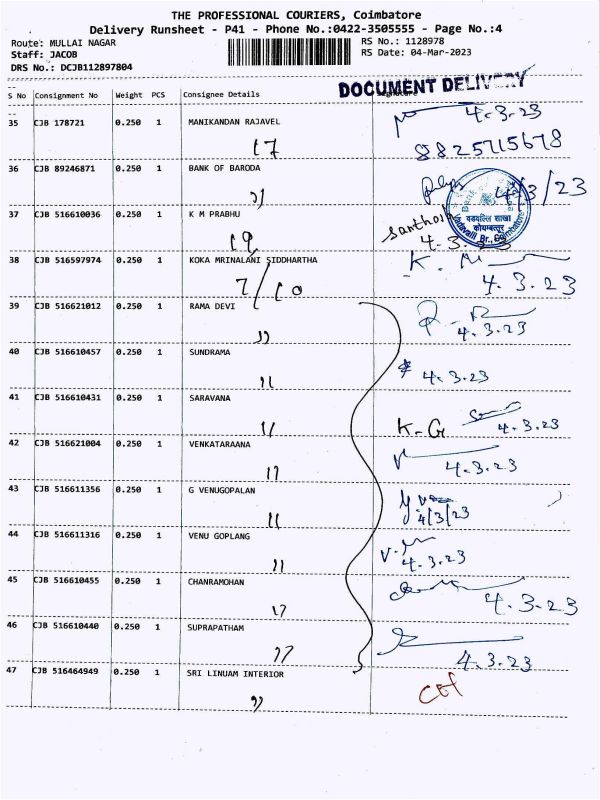 THE PROFESSIONAL COURIERS, Coimbatore
Delivery Runsheet - P41 - Phone No.:0422-3505555 - Page No.:4
Route: MULLAI NAGAR RS No.: 1128978
Staff: JACOB RS Date: 04-Mar-2023
DRS No.: DCJB112897804
DOCUMENT DELIVERY
S No Consignment No Weight PCS Consignee Details
35 CJB 178721 0.250 1 MANIKANDAN RAJAVEL 4.3.23
17 8825715678
36 CJB 89246871 0.250 1 BANK OF BARODA 4/3/23
पडवल्लि शाखा
कोयम्बत्तूर
37 CJB 516610036 0.250 1 K M PRABHU Santhosh
19 4.3.23
38 CJB 516597974 0.250 1 KOKA MRINALANI SIDDHARTHA K. M
7/10 4.3.23
39 CJB 516621012 0.250 1 RAMA DEVI
" 4.3.23
40 CJB 516610457 0.250 1 SUNDRAMA
" 4.3.23
41 CJB 516610431 0.250 1 SARAVANA
" K-G 4.3.23
42 CJB 516621004 0.250 1 VENKATARAANA
" 4.3.23
43 CJB 516611356 0.250 1 G VENUGOPALAN
" 4/3/23
44 CJB 516611316 0.250 1 VENU GOPLANG
" 4.3.23
45 CJB 516610455 0.250 1 CHANRAMOHAN
" 4.3.23
46 CJB 516610440 0.250 1 SUPRAPATHAM
" 4.3.23
47 CJB 516464949 0.250 1 SRI LINUAM INTERIOR
"